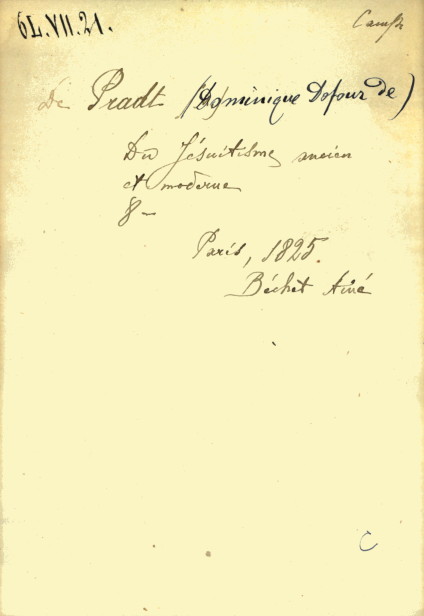 6L.VII.21.
De Pradt (Dominique Dofour de)
Du Jésuitisme ancien
et moderne
8-
Paris, 1825.
Béchet Ainé
C